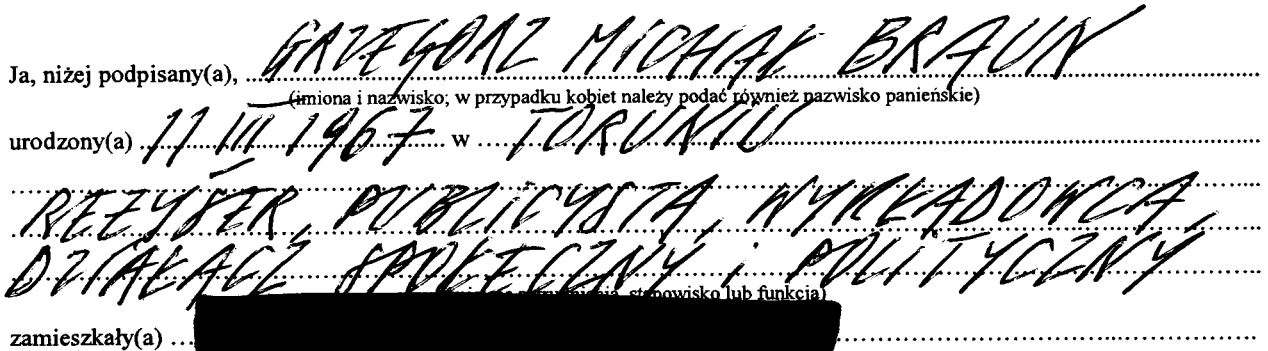 Ja, niżej podpisany(a), GRZEGORZ MICHAŁ BRAUN
(imiona i nazwisko; w przypadku kobiet należy podać również nazwisko panieńskie)
urodzony(a) 11 III 1967 w TORUNIU
REŻYSER, PUBLICYSTA, WYKŁADOWCA,
DZIAŁACZ SPOŁECZNY i POLITYCZNY
stanowisko lub funkcja)
zamieszkały(a)